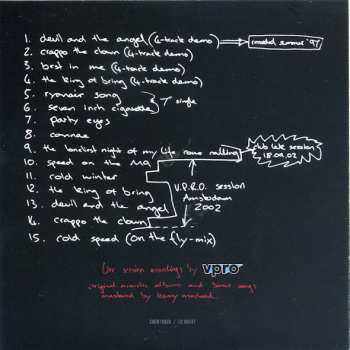 1. devil and the angel (4-track demo) → installed summer '97
2. crappo the clown (4-track demo)
3. best in me (4-track demo)
4. the king of bring (4-track demo)
5. ryanair song
6. seven inch cigarette
single
7. party eyes
8. connae
9. the loneliest night of my life came calling
club lek session 18.04.02
10. speed on the M9
11. cold winter
12. the king of bring
13. devil and the angel
14. crappo the clown
V.P.R.O. session Amsterdam 2002
15. cold speed (on the fly-mix)
live session recordings by vpro
original minidisc albums and bonus songs
mastered by kenny macleod